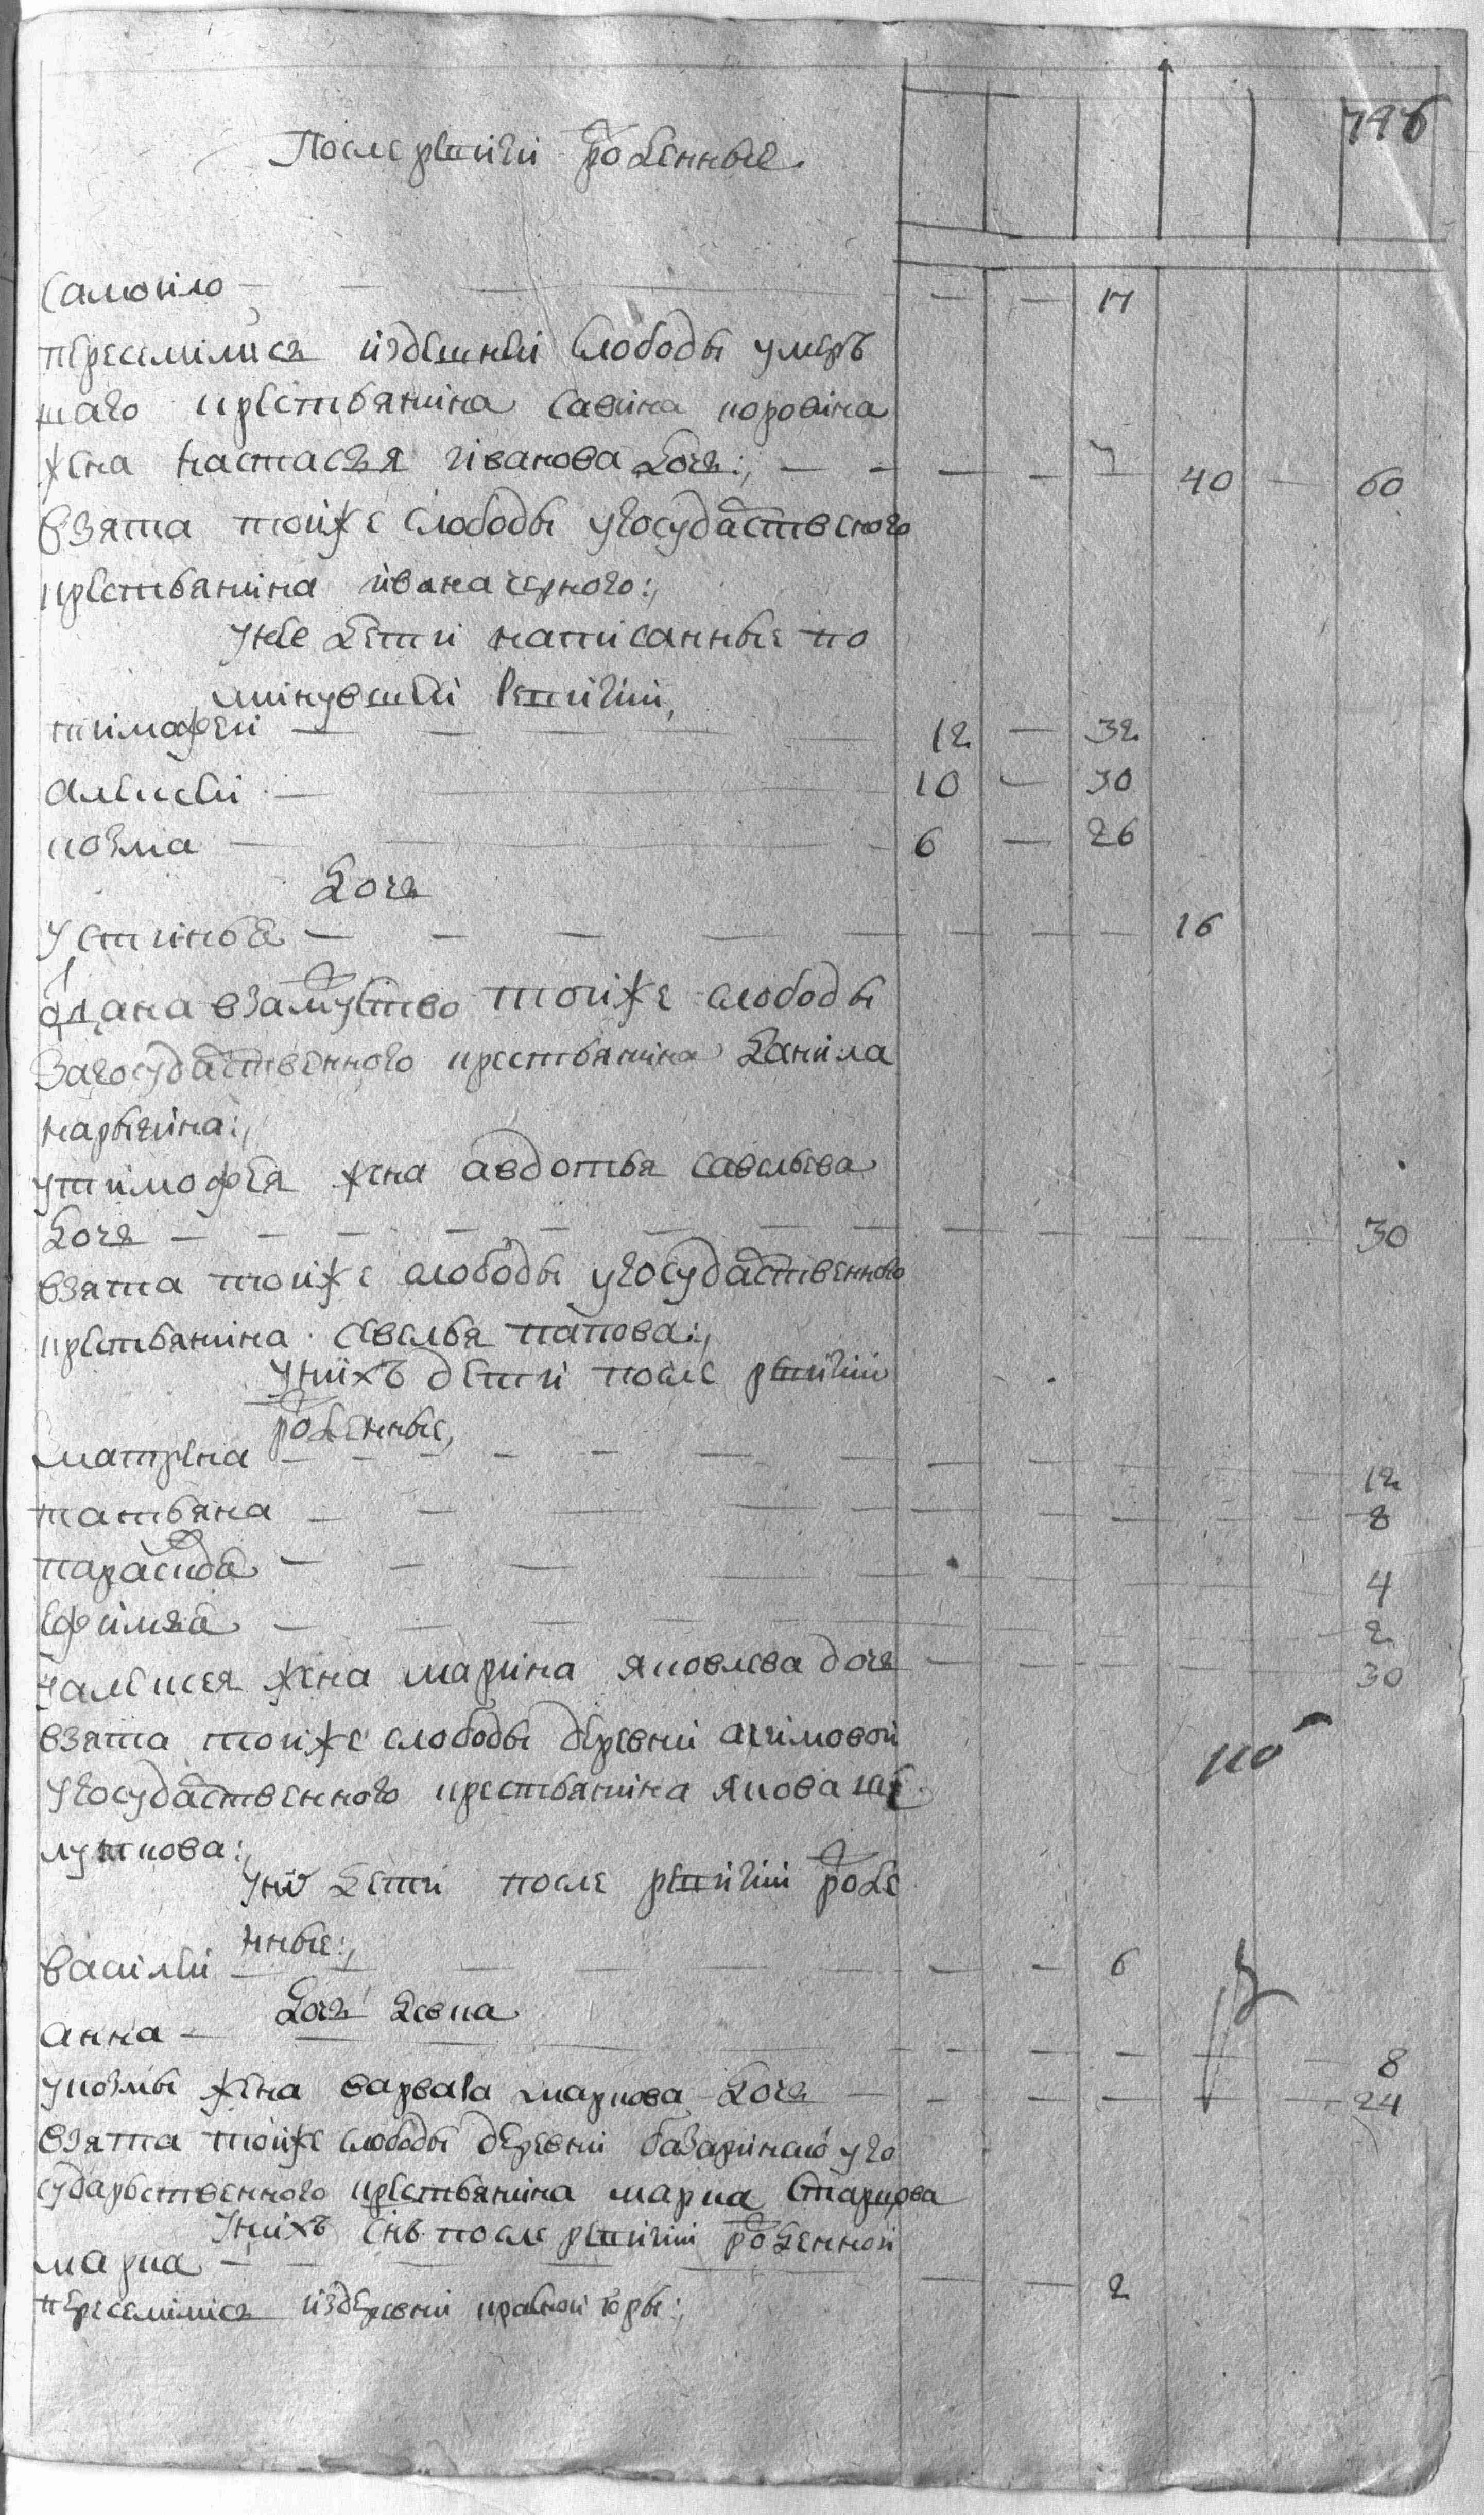 796
После ревизiи рожденные
Самойло — — — — 17
переселилися издешней слободы умерь
шаго крестьянина савина коровина
жена настасья иванова дочь:, — — — — 40 — 60
взята тойже слободы угосударственого
крестьянина ивана черного:,
унее дети написанные по
минувшей ревизiи,
тимофеи — — — 12 — 32
алексей — — 10 — 30
козма — — 6 — 26
дочь
устинья — — — — — — 16
одана взамужство тойже слободы
загосударственного крестьянина данила
утимофея жена авдотья савельева
дочь — — — — — — — — — 30
взята тойже слободы угосударственного
крестьянина савелья папова:,
унихъ дети после ревизiи
рожденные,
матрена — — — — — — — 12
татьяна — — — — — — 8
парасковья — — — — — — 4
ефимья — — — — — — 2
уалексея жена марина яковлева дочь — — — — 30
взята тойже слободы деревни акимовой
угосударственного крестьянина якова ше
луткова:,
уних дети после ревизiи рожде
нные:,
василей — — — — — 6
дочь девка
анна — — — — — — 8
укозмы жена варвара маркова дочь — — — — 24
взята тойже слободы деревни базаринской уго
сударьственного крестьянина марка старцова
унихъ снъ после ревизiи рожденной
марка — — — — — 2
переселились издеревни красной горы:,